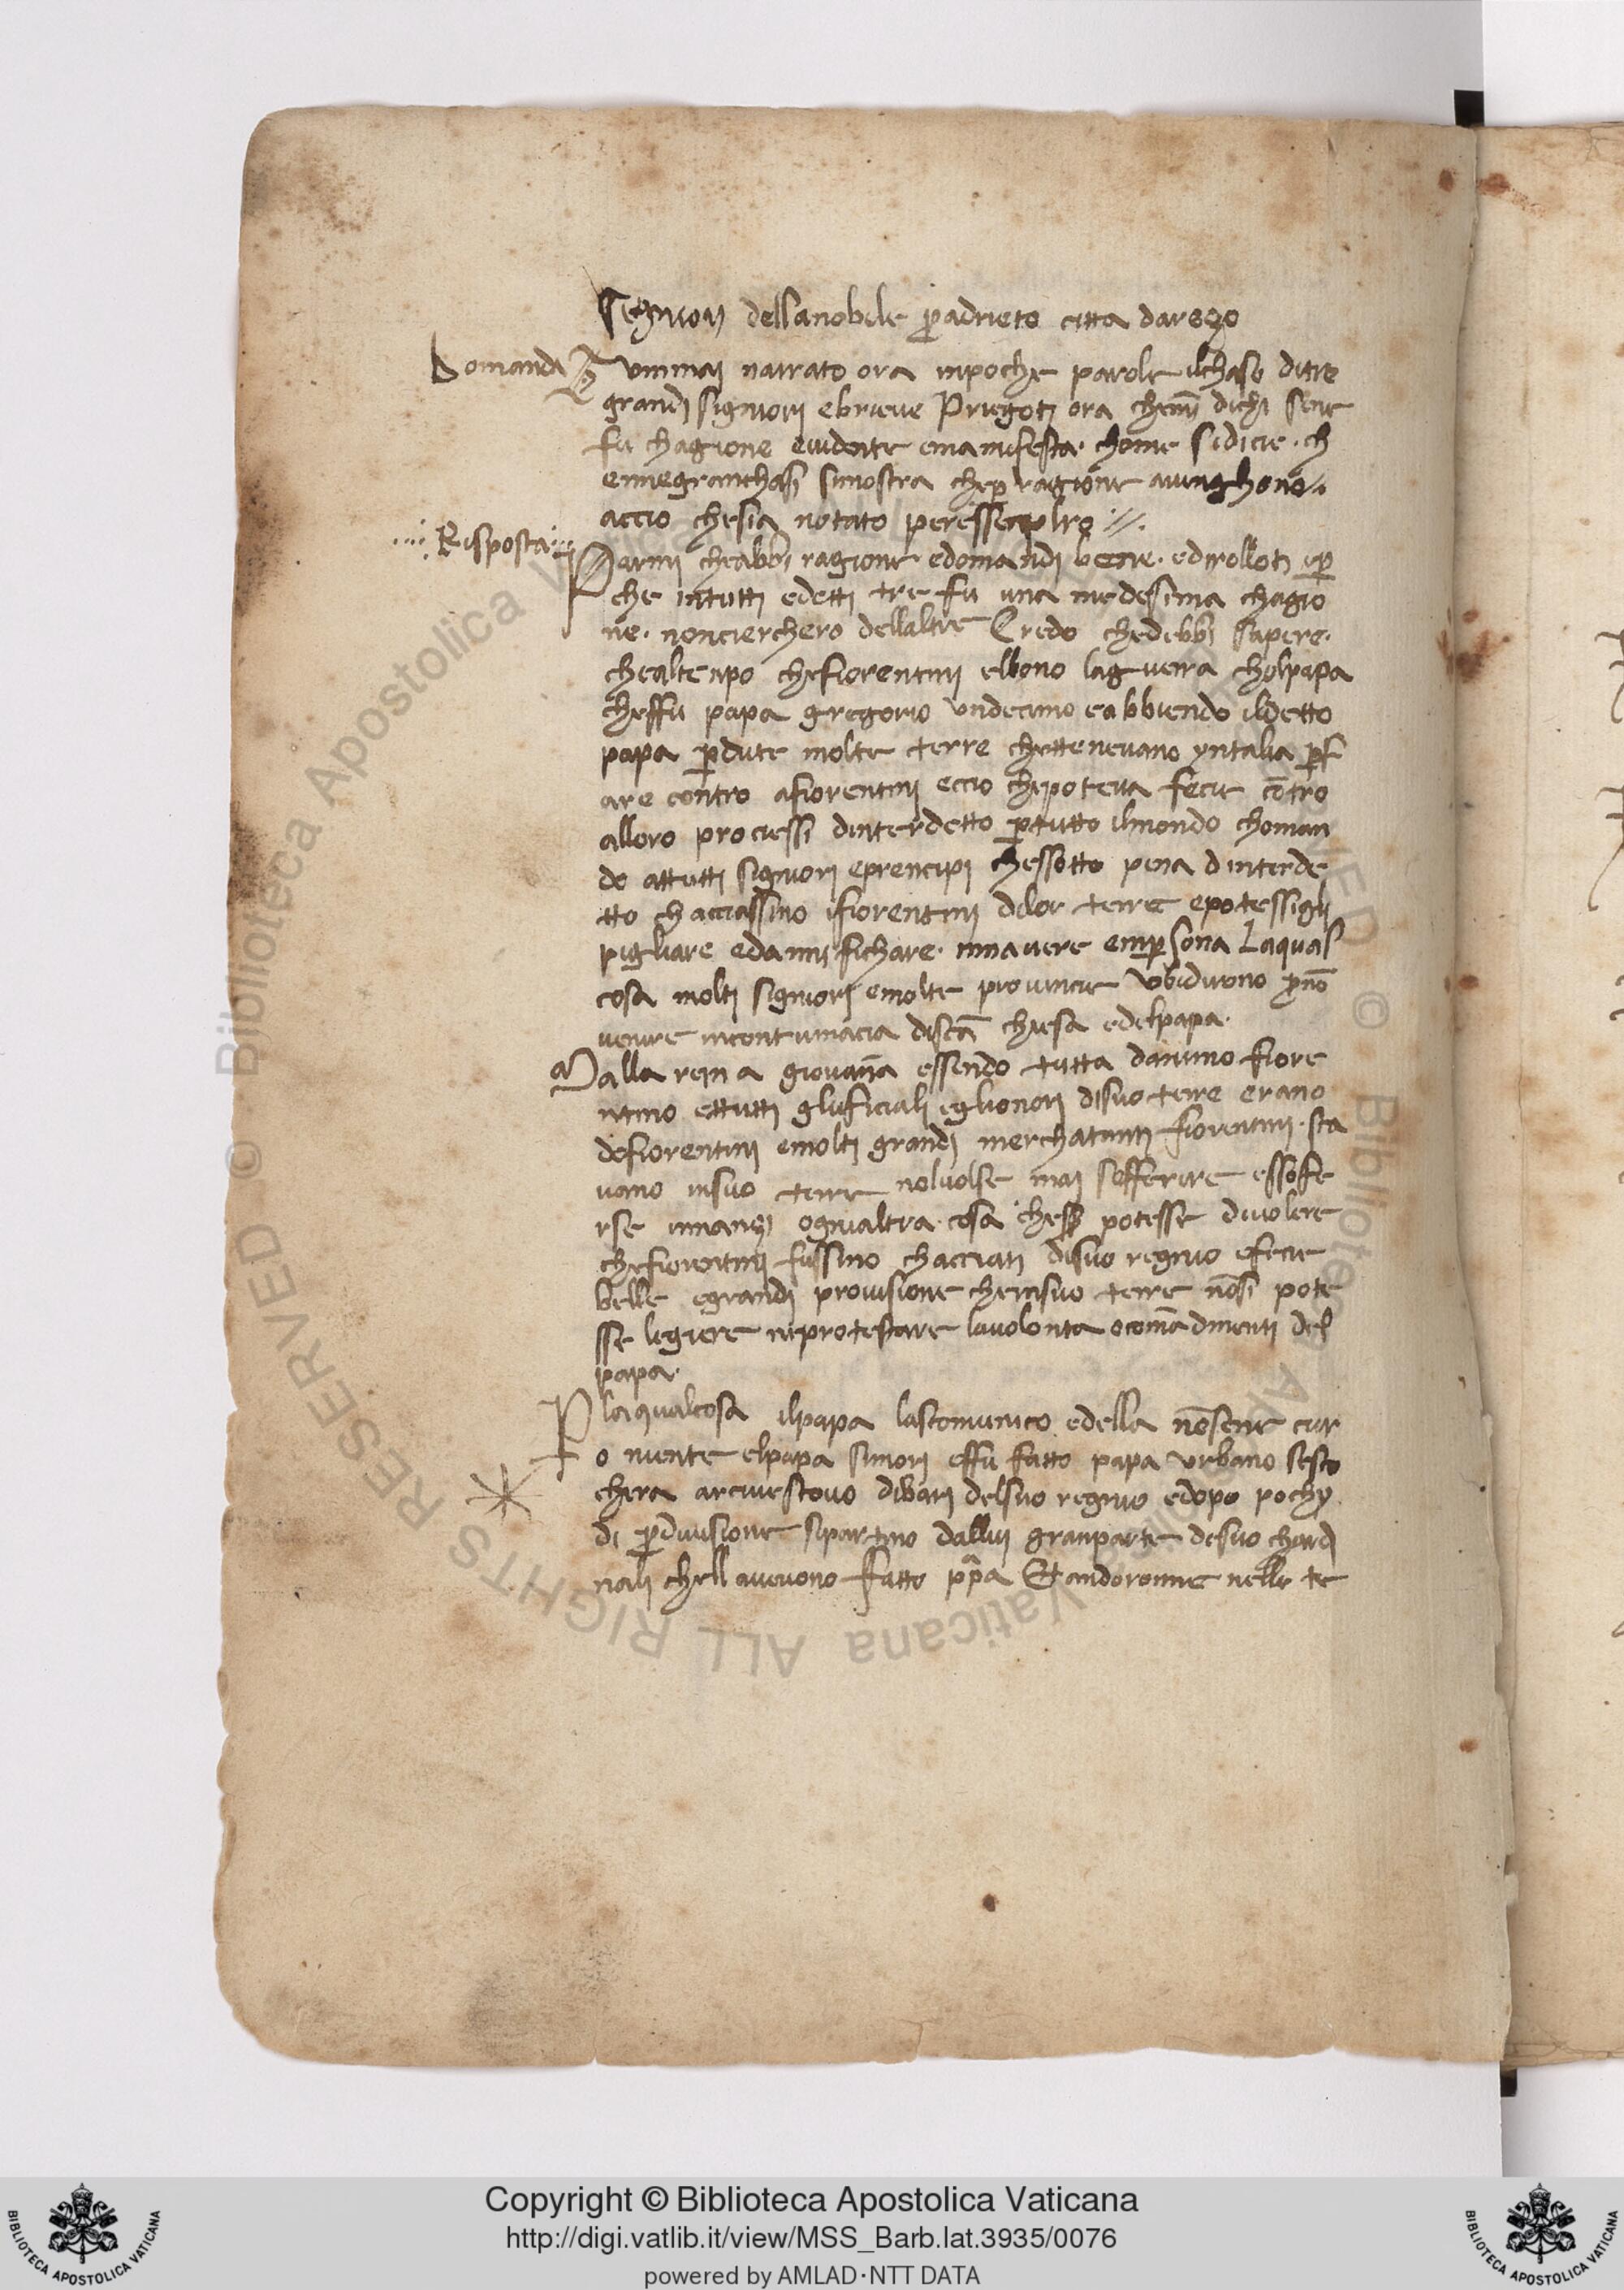 Segniori dellanobile p̱adrieto citta darezo
Domanda
Tummai narrato ora inpoche parole ilchaso ditre
grandi signiori ebrieve Priegoti ora chemi dichi sene
fu chagione euidente emanifesta. chome sidicie. ch
enniegranchasi simostra chep̱ ragione avenghono
accio chesia notato peressenplro //.
Risposta
Parmi cheabbi ragione edomandi bene. edirolloti ep̱
che intutti edetti tre fu una medesima chagio
ne. noncierchero dellaltre Credo chedebbi sapere.
chealtenpo chefiorentini ebbono laguerra cholpapa
cheffu papa gregorio undecimo eabbiendo ildetto
papa p̱dute molte terre chettenevano yntalia p̱f
are contro afiorentini eccio chepoteva fecie cōtro
alloro prociessi dinterdetto p̱tutto ilmondo choman
do attutti signiori eprencipi chessotto pena dinterde
tto chacciassino ifiorentini dilor terre epotessigli
pigliare edannifichare. innavere enp̱sona Laqual
cosa molti signiori emolte provincie vbidirono p̱nō
venire incontumacia discā chiesa edelpapa.
Malla reina giovañа essendo tutta danimo fiore
ntino ettutti gliuficiali eglionori disuo terre erano
defiorentini emolti grandi merchatanti fiorentini. sta
uano insuo terre nolvolse mai sofferire essofe
rse innanzi ognialtra cosa chessi potesse divolere
chefiorentini fussino chacciati disuo regnio efecie
belle egrandi provisione cheinsuo terre nōsi pote
sse legiere neprotestare lavolonta ocomādamenti del
papa.
P̱ laqualcosa ilpapa lascomunico edella nōsene cur
o niente elpapa simori effu fatto papa vrbano sesto
chera arcivescovo dibari delsuo regnio edopo pochy
di p̱divisione sipartino dallui granparte desuo chardi
nali chell avevono fatto pp̄a Et andoronne nelle te
Copyright © Biblioteca Apostolica Vaticana
http://digi.vatlib.it/view/MSS_Barb.lat.3935/0076
powered by AMLAD·NTT DATA
BIBLIOTECA APOSTOLICA VATICANA
BIBLIOTECA APOSTOLICA VATICANA